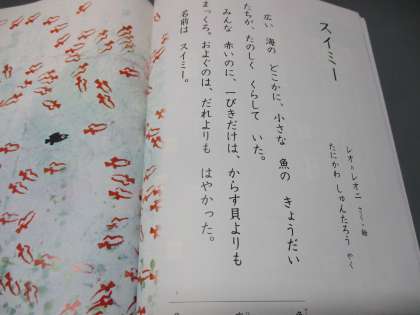 スイミー
レオ=レオニ さく・絵
たにかわ しゅんたろう やく
広い 海の どこかに、小さな 魚の きょうだい
たちが、たのしく くらして いた。
みんな 赤いのに、一ぴきだけは、からす貝よりも
まっくろ。およぐのは、だれよりも はやかった。
名前は スイミー。